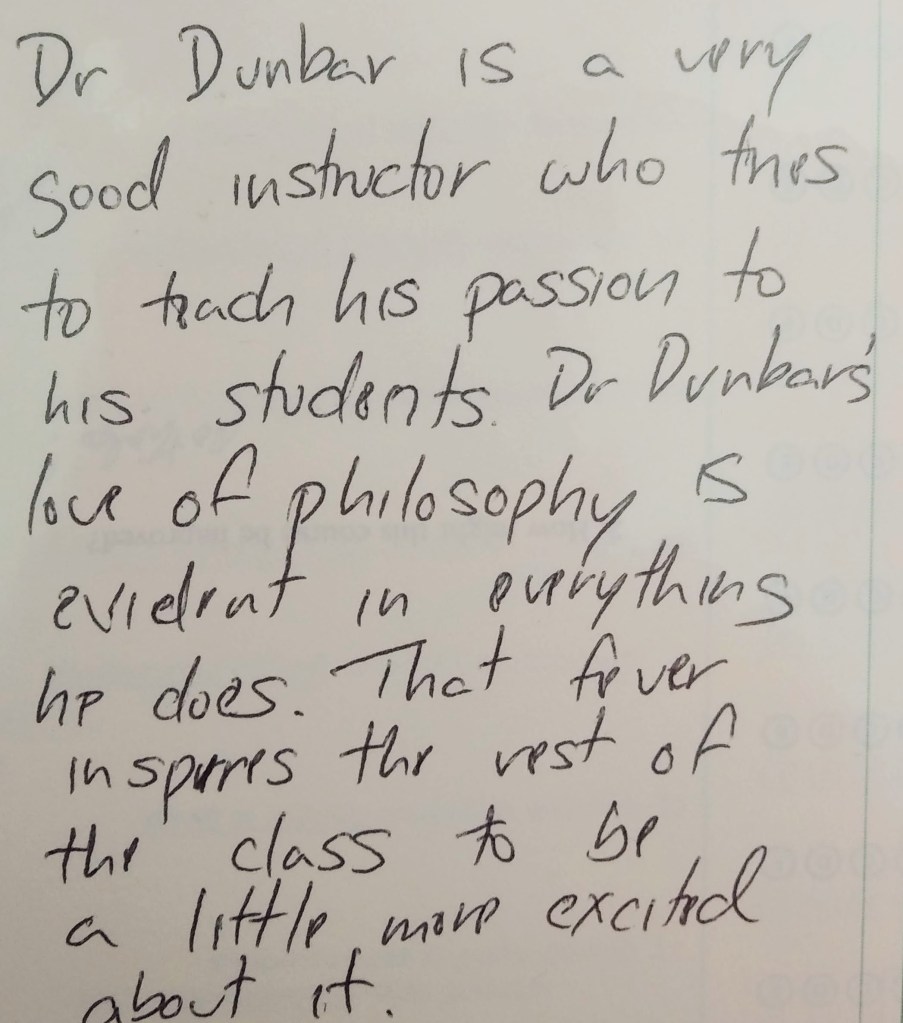 Dr Dunbar is a very
good instructor who tries
to teach his passion to
his students. Dr Dunbar's
love of philosophy is
evident in everything
he does. That fever
inspires the rest of
the class to be
a little more excited
about it.